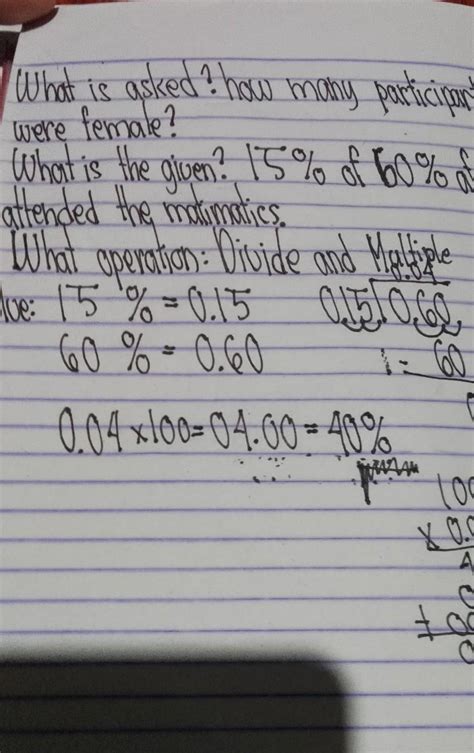 What is asked? how many participan
were female?
What is the given? 15% of 60% of
attended the matimatics.
What operation: Divide and Multiple
lve: 15 % = 0.15 0.15 0.60
60 % = 0.60 1 = 60
0.04 x100= 04.00 = 40%
100
x 0.0
4
0
+ 00
0